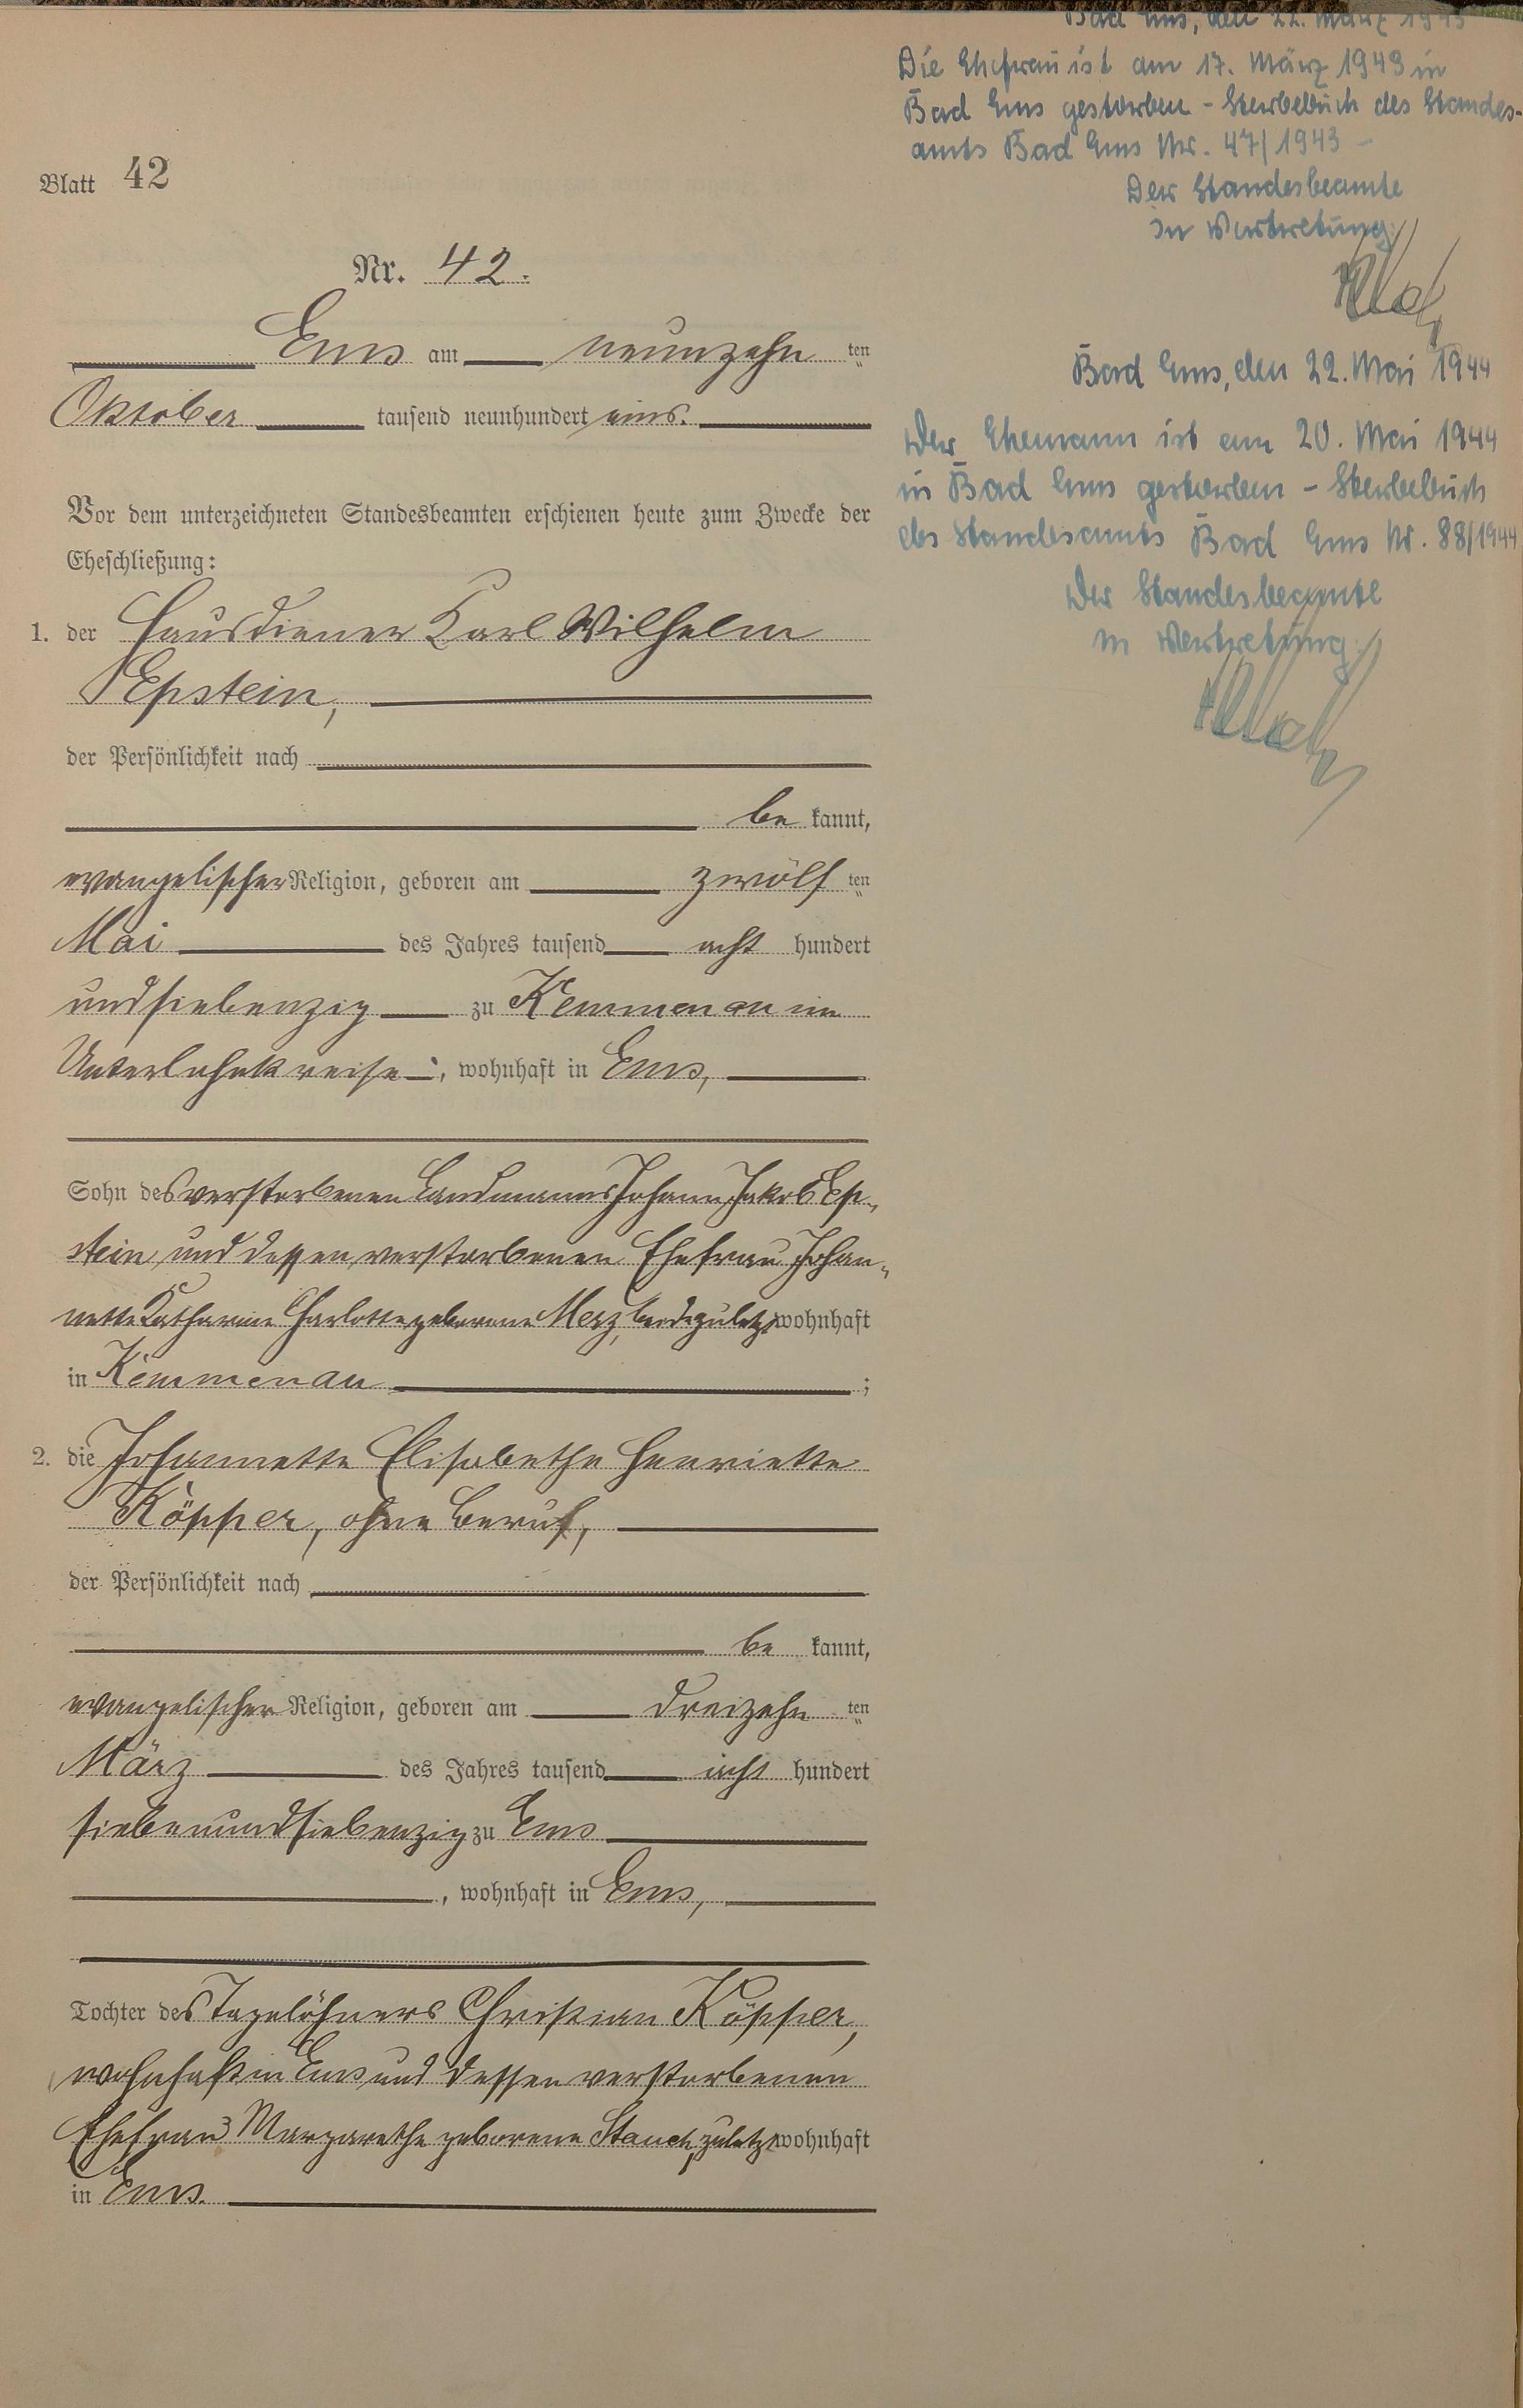 Blatt 42
Nr. 42.
Ems am neunzehn ten
Oktober tausend neunhundert eins.
Vor dem unterzeichneten Standesbeamten erschienen heute zum Zwecke der
Eheschließung:
1. der Hausdiener Karl Wilhelm
Epstein,
der Persönlichkeit nach
be kannt,
evangelischer Religion, geboren am zwölf ten
Mai des Jahres tausend acht hundert
undsiebenzig zu Kemmenau im
Unterlahnkreise, wohnhaft in Ems,
Sohn des verstorbenen Landmanns Johann Jakob Ep-
stein und dessen verstorbenen Ehefrau Johan-
nette Katharine Charlotte geborene Merz, beide zuletzt wohnhaft
in Kemmenau ;
2. die Johannette Elisabethe Henriette
Köpper, ohne Beruf,
der Persönlichkeit nach
be kannt,
evangelischer Religion, geboren am dreizehn ten
März des Jahres tausend acht hundert
siebenundsiebenzig zu Ems
, wohnhaft in Ems,
Tochter des Tagelöhners Christian Köpper,
wohnhaft in Ems und dessen verstorbenen
Ehefrau Margarethe geborene Stauch, zuletzt wohnhaft
in Ems.
Bad Ems, den 22. März 1943
Die Ehefrau ist am 17. März 1943 in
Bad Ems gestorben - Sterbebuch des Standes-
amts Bad Ems Nr. 47/1943 -
Der Standesbeamte
in Vertretung:
Bad Ems, den 22. Mai 1944
Der Ehemann ist am 20. Mai 1944
in Bad Ems gestorben - Sterbebuch
des Standesamts Bad Ems Nr. 88/1944
Der Standesbeamte
in Vertretung: